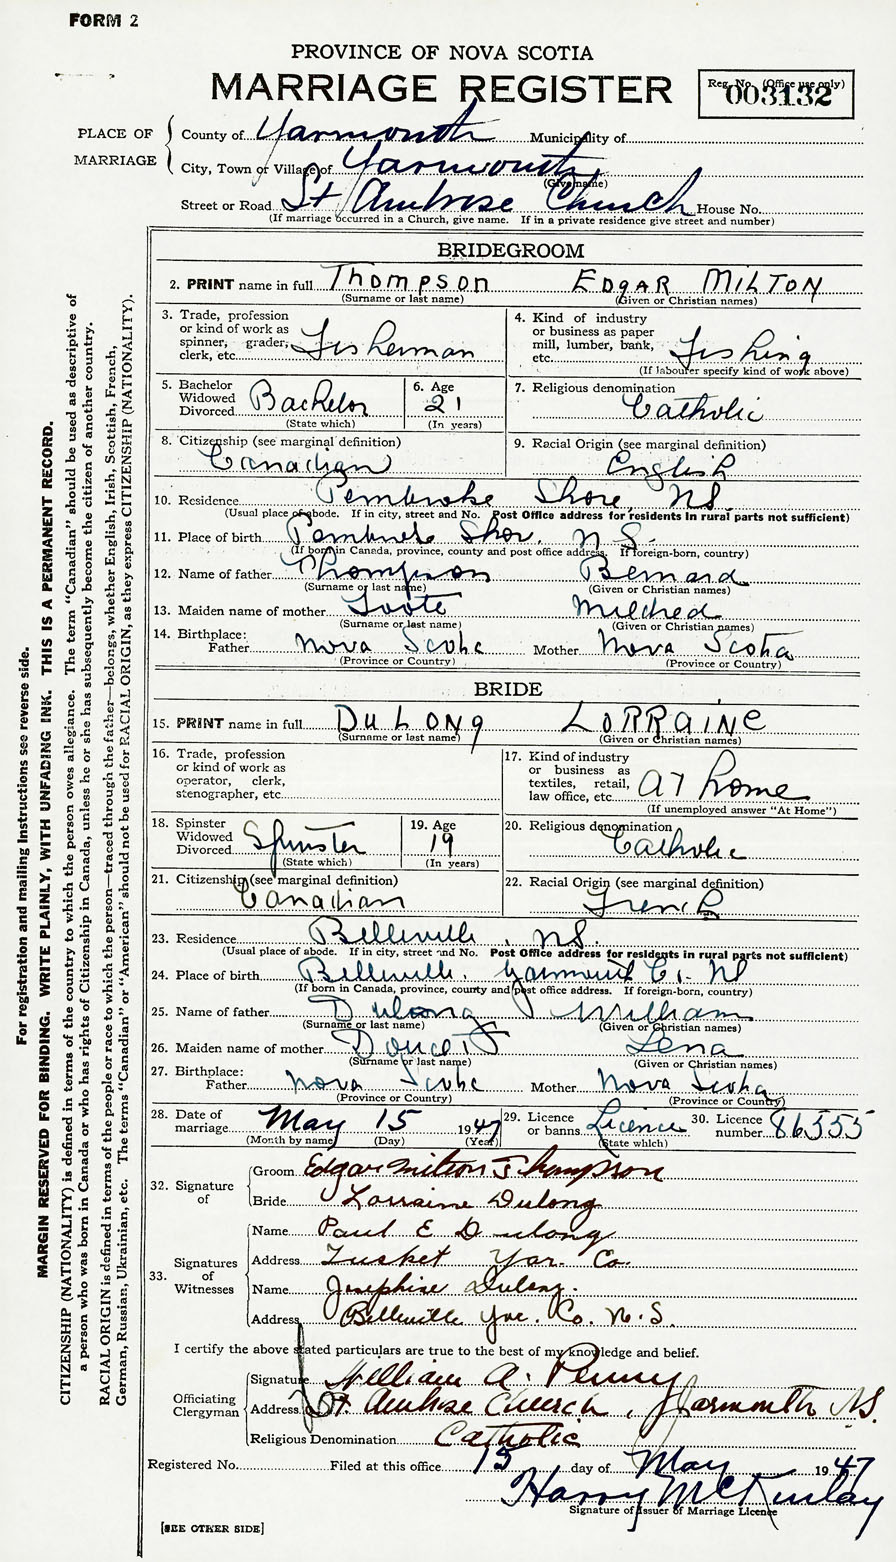 FORM 2
PROVINCE OF NOVA SCOTIA
MARRIAGE REGISTER
Reg. No. (Office use only)
003132
PLACE OF MARRIAGE
County of Yarmouth Municipality of
City, Town or Village of Yarmouth
(Give name)
Street or Road St Ambrose Church House No.
(If marriage occurred in a Church, give name. If in a private residence give street and number)
BRIDEGROOM
2. PRINT name in full THOMPSON EDGAR MILTON
(Surname or last name) (Given or Christian names)
3. Trade, profession
or kind of work as
spinner, grader,
clerk, etc. Fisherman
4. Kind of industry
or business as paper
mill, lumber, bank,
etc. Fishing
(If labourer specify kind of work above)
5. Bachelor
Widowed
Divorced Bachelor
(State which)
6. Age
21
(In years)
7. Religious denomination
Catholic
8. Citizenship (see marginal definition)
Canadian
9. Racial Origin (see marginal definition)
English
10. Residence Pembroke Shore, NS.
(Usual place of abode. If in city, street and No. Post Office address for residents in rural parts not sufficient)
11. Place of birth Pembroke Shor. N S.
(If born in Canada, province, county and post office address. If foreign-born, country)
12. Name of father Thompson Bernard
(Surname or last name) (Given or Christian names)
13. Maiden name of mother Foote Mildred
(Surname or last name) (Given or Christian names)
14. Birthplace:
Father Nova Scotia Mother Nova Scotia
(Province or Country) (Province or Country)
BRIDE
15. PRINT name in full DuLONg LORRAINE
(Surname or last name) (Given or Christian names)
16. Trade, profession
or kind of work as
operator, clerk,
stenographer, etc.
17. Kind of industry
or business as
textiles, retail,
law office, etc. AT home
(If unemployed answer "At Home")
18. Spinster
Widowed
Divorced Spinster
(State which)
19. Age
19
(In years)
20. Religious denomination
Catholic
21. Citizenship (see marginal definition)
Canadian
22. Racial Origin (see marginal definition)
French
23. Residence Belleville, NS.
(Usual place of abode. If in city, street and No. Post Office address for residents in rural parts not sufficient)
24. Place of birth Belleville. Yarmouth Co. NS
(If born in Canada, province, county and post office address. If foreign-born, country)
25. Name of father Dulong William
(Surname or last name) (Given or Christian names)
26. Maiden name of mother Doucett Lena
(Surname or last name) (Given or Christian names)
27. Birthplace:
Father Nova Scotia Mother Nova Scotia
(Province or Country) (Province or Country)
28. Date of
marriage May 15 1947
(Month by name) (Day) (Year)
29. Licence
or banns Licence
(State which)
30. Licence
number 86555
32. Signature of
Groom Edgar Milton Thompson
Bride Lorraine Dulong
33. Signatures of Witnesses
Name Paul E Dulong
Address Tusket Yar. Co.
Name Josephine Dulong.
Address Belleville Yar. Co. N.S.
I certify the above stated particulars are true to the best of my knowledge and belief.
Officiating Clergyman
Signature William A. Penny
Address St. Ambrose Church, Yarmouth NS.
Religious Denomination Catholic
Registered No. Filed at this office 15 day of May 1947
Harry McKinlay
Signature of Issuer of Marriage Licence
[SEE OTHER SIDE]
For registration and mailing instructions see reverse side.
MARGIN RESERVED FOR BINDING. WRITE PLAINLY, WITH UNFADING INK. THIS IS A PERMANENT RECORD.
CITIZENSHIP (NATIONALITY) is defined in terms of the country to which the person owes allegiance. The term "Canadian" should be used as descriptive of
a person who was born in Canada or who has rights of Citizenship in Canada, unless he or she has subsequently become the citizen of another country.
RACIAL ORIGIN is defined in terms of the people or race to which the person—traced through the father—belongs, whether English, Irish, Scottish, French,
German, Russian, Ukrainian, etc. The terms "Canadian" or "American" should not be used for RACIAL ORIGIN, as they express CITIZENSHIP (NATIONALITY).